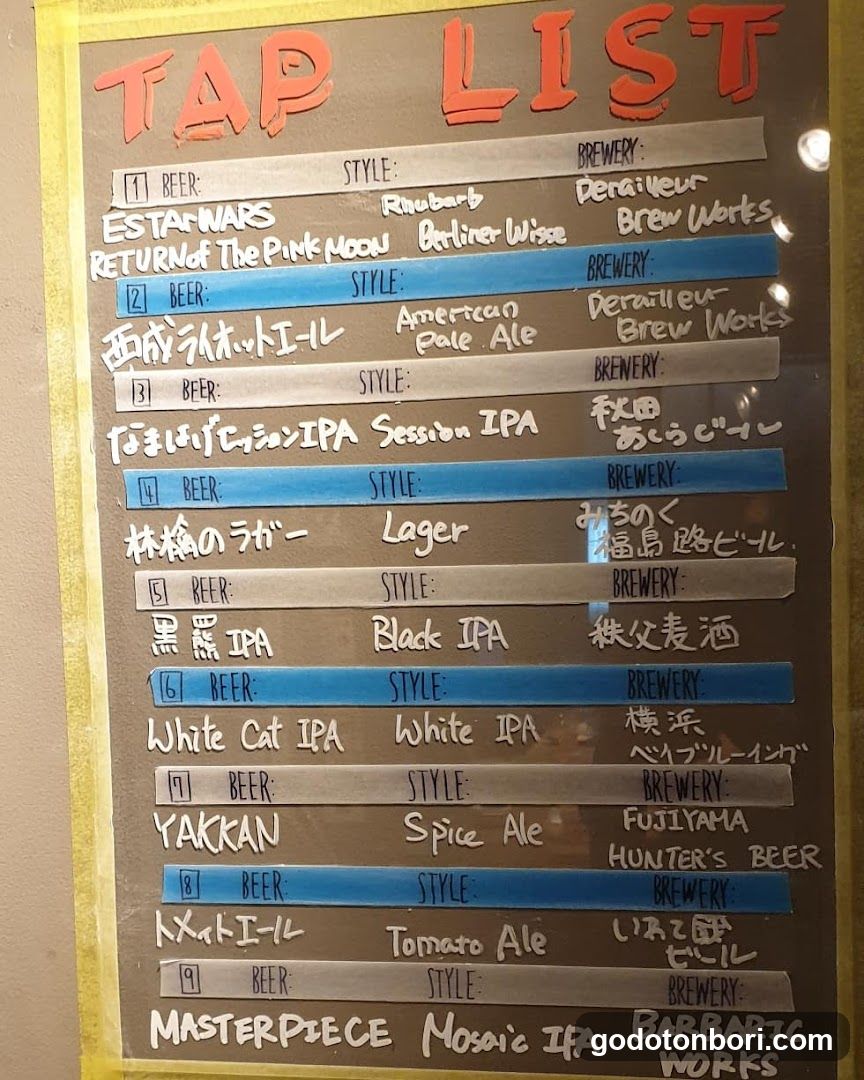 TAP LIST
1 BEER: STYLE: BREWERY:
ESTARWARS Rhubarb Derailleur
RETURN of The PINK MOON Berliner Wisse Brew Works
2 BEER: STYLE: BREWERY:
西成ライオットエール American Derailleur
Pale Ale Brew Works
3 BEER: STYLE: BREWERY:
なまはげセッションIPA Session IPA 秋田
あくらビール
4 BEER: STYLE: BREWERY:
林檎のラガー Lager みちのく
福島路ビール.
5 BEER: STYLE: BREWERY:
黒羆IPA Black IPA 秩父麦酒
6 BEER: STYLE: BREWERY:
White Cat IPA White IPA 横浜
ベイブルーイング
7 BEER: STYLE: BREWERY:
YAKKAN Spice Ale FUJIYAMA
HUNTER'S BEER
8 BEER: STYLE: BREWERY:
トメィトエール Tomato Ale いわて蔵
ビール
9 BEER: STYLE: BREWERY:
MASTERPIECE Mosaic IPA BARBARIC
WORKS
godotonbori.com